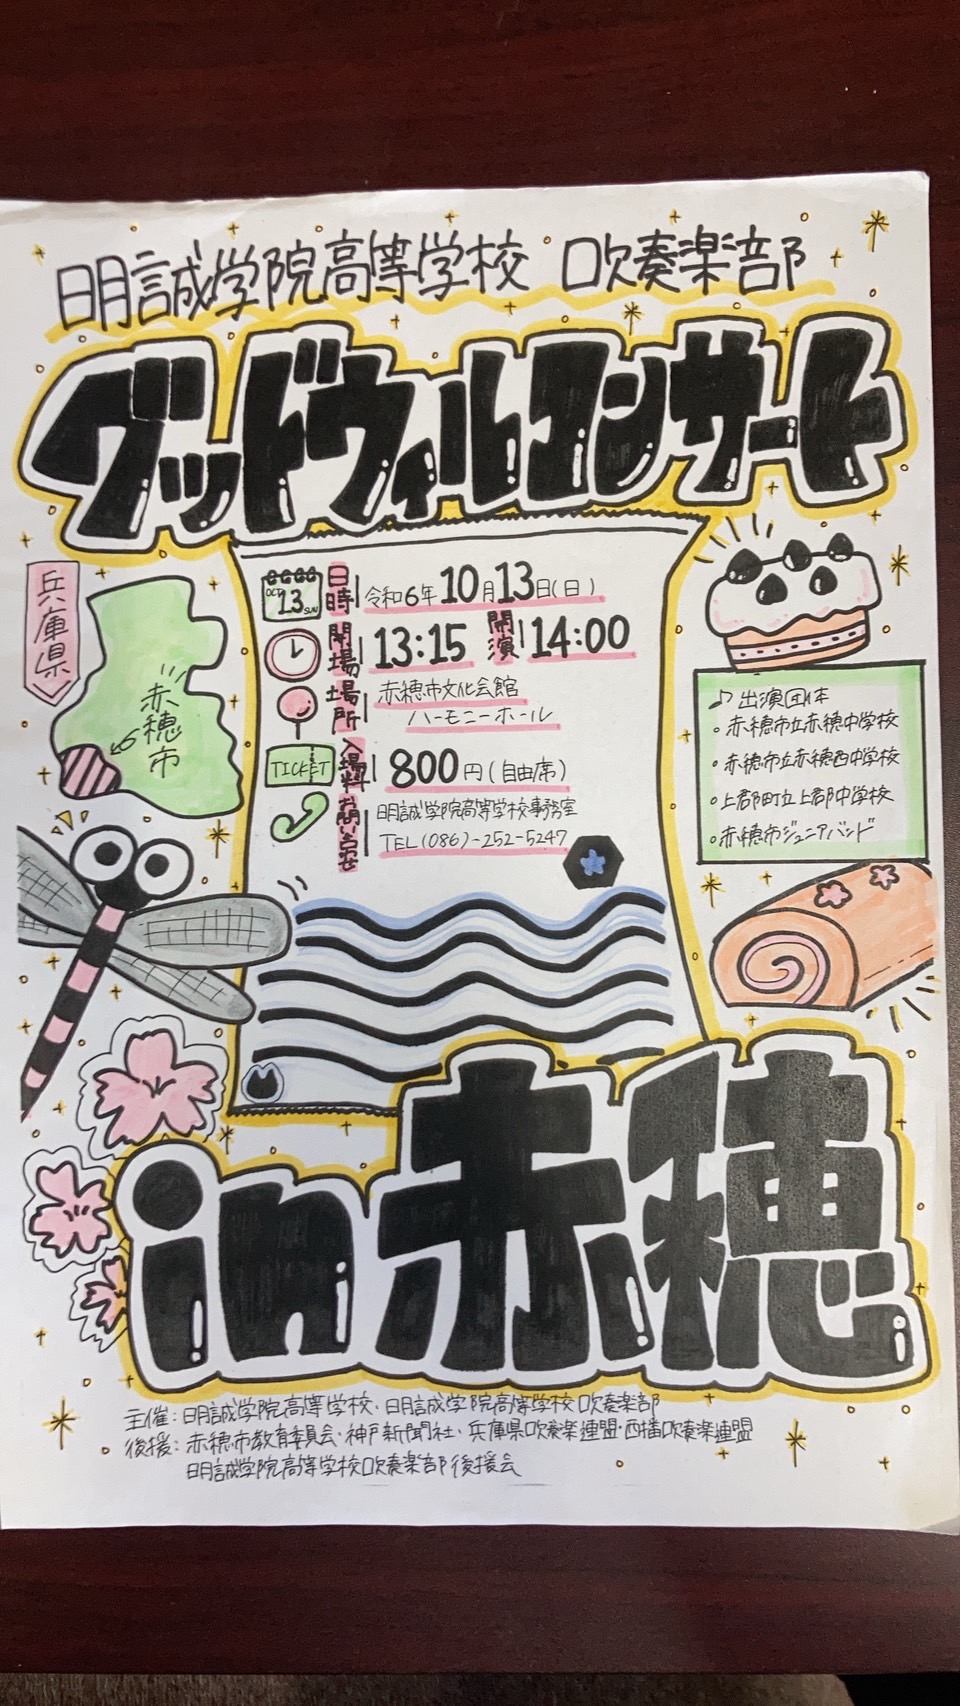 明誠学院高等学校 吹奏楽部
グッドウィルコンサート
兵庫県
赤穂市
OCT
13 SUN
日時 令和6年10月13日(日)
開場 13:15 開演 14:00
場所 赤穂市文化会館
ハーモニーホール
TICKET 入場料 800円(自由席)
お問い合わせ 明誠学院高等学校事務室
TEL(086)-252-5247
♪出演団体
・赤穂市立赤穂中学校
・赤穂市立赤穂西中学校
・上郡町立上郡中学校
・赤穂市ジュニアバンド
in赤穂
主催:明誠学院高等学校・明誠学院高等学校吹奏楽部
後援:赤穂市教育委員会・神戸新聞社・兵庫県吹奏楽連盟・西播吹奏楽連盟
明誠学院高等学校吹奏楽部後援会